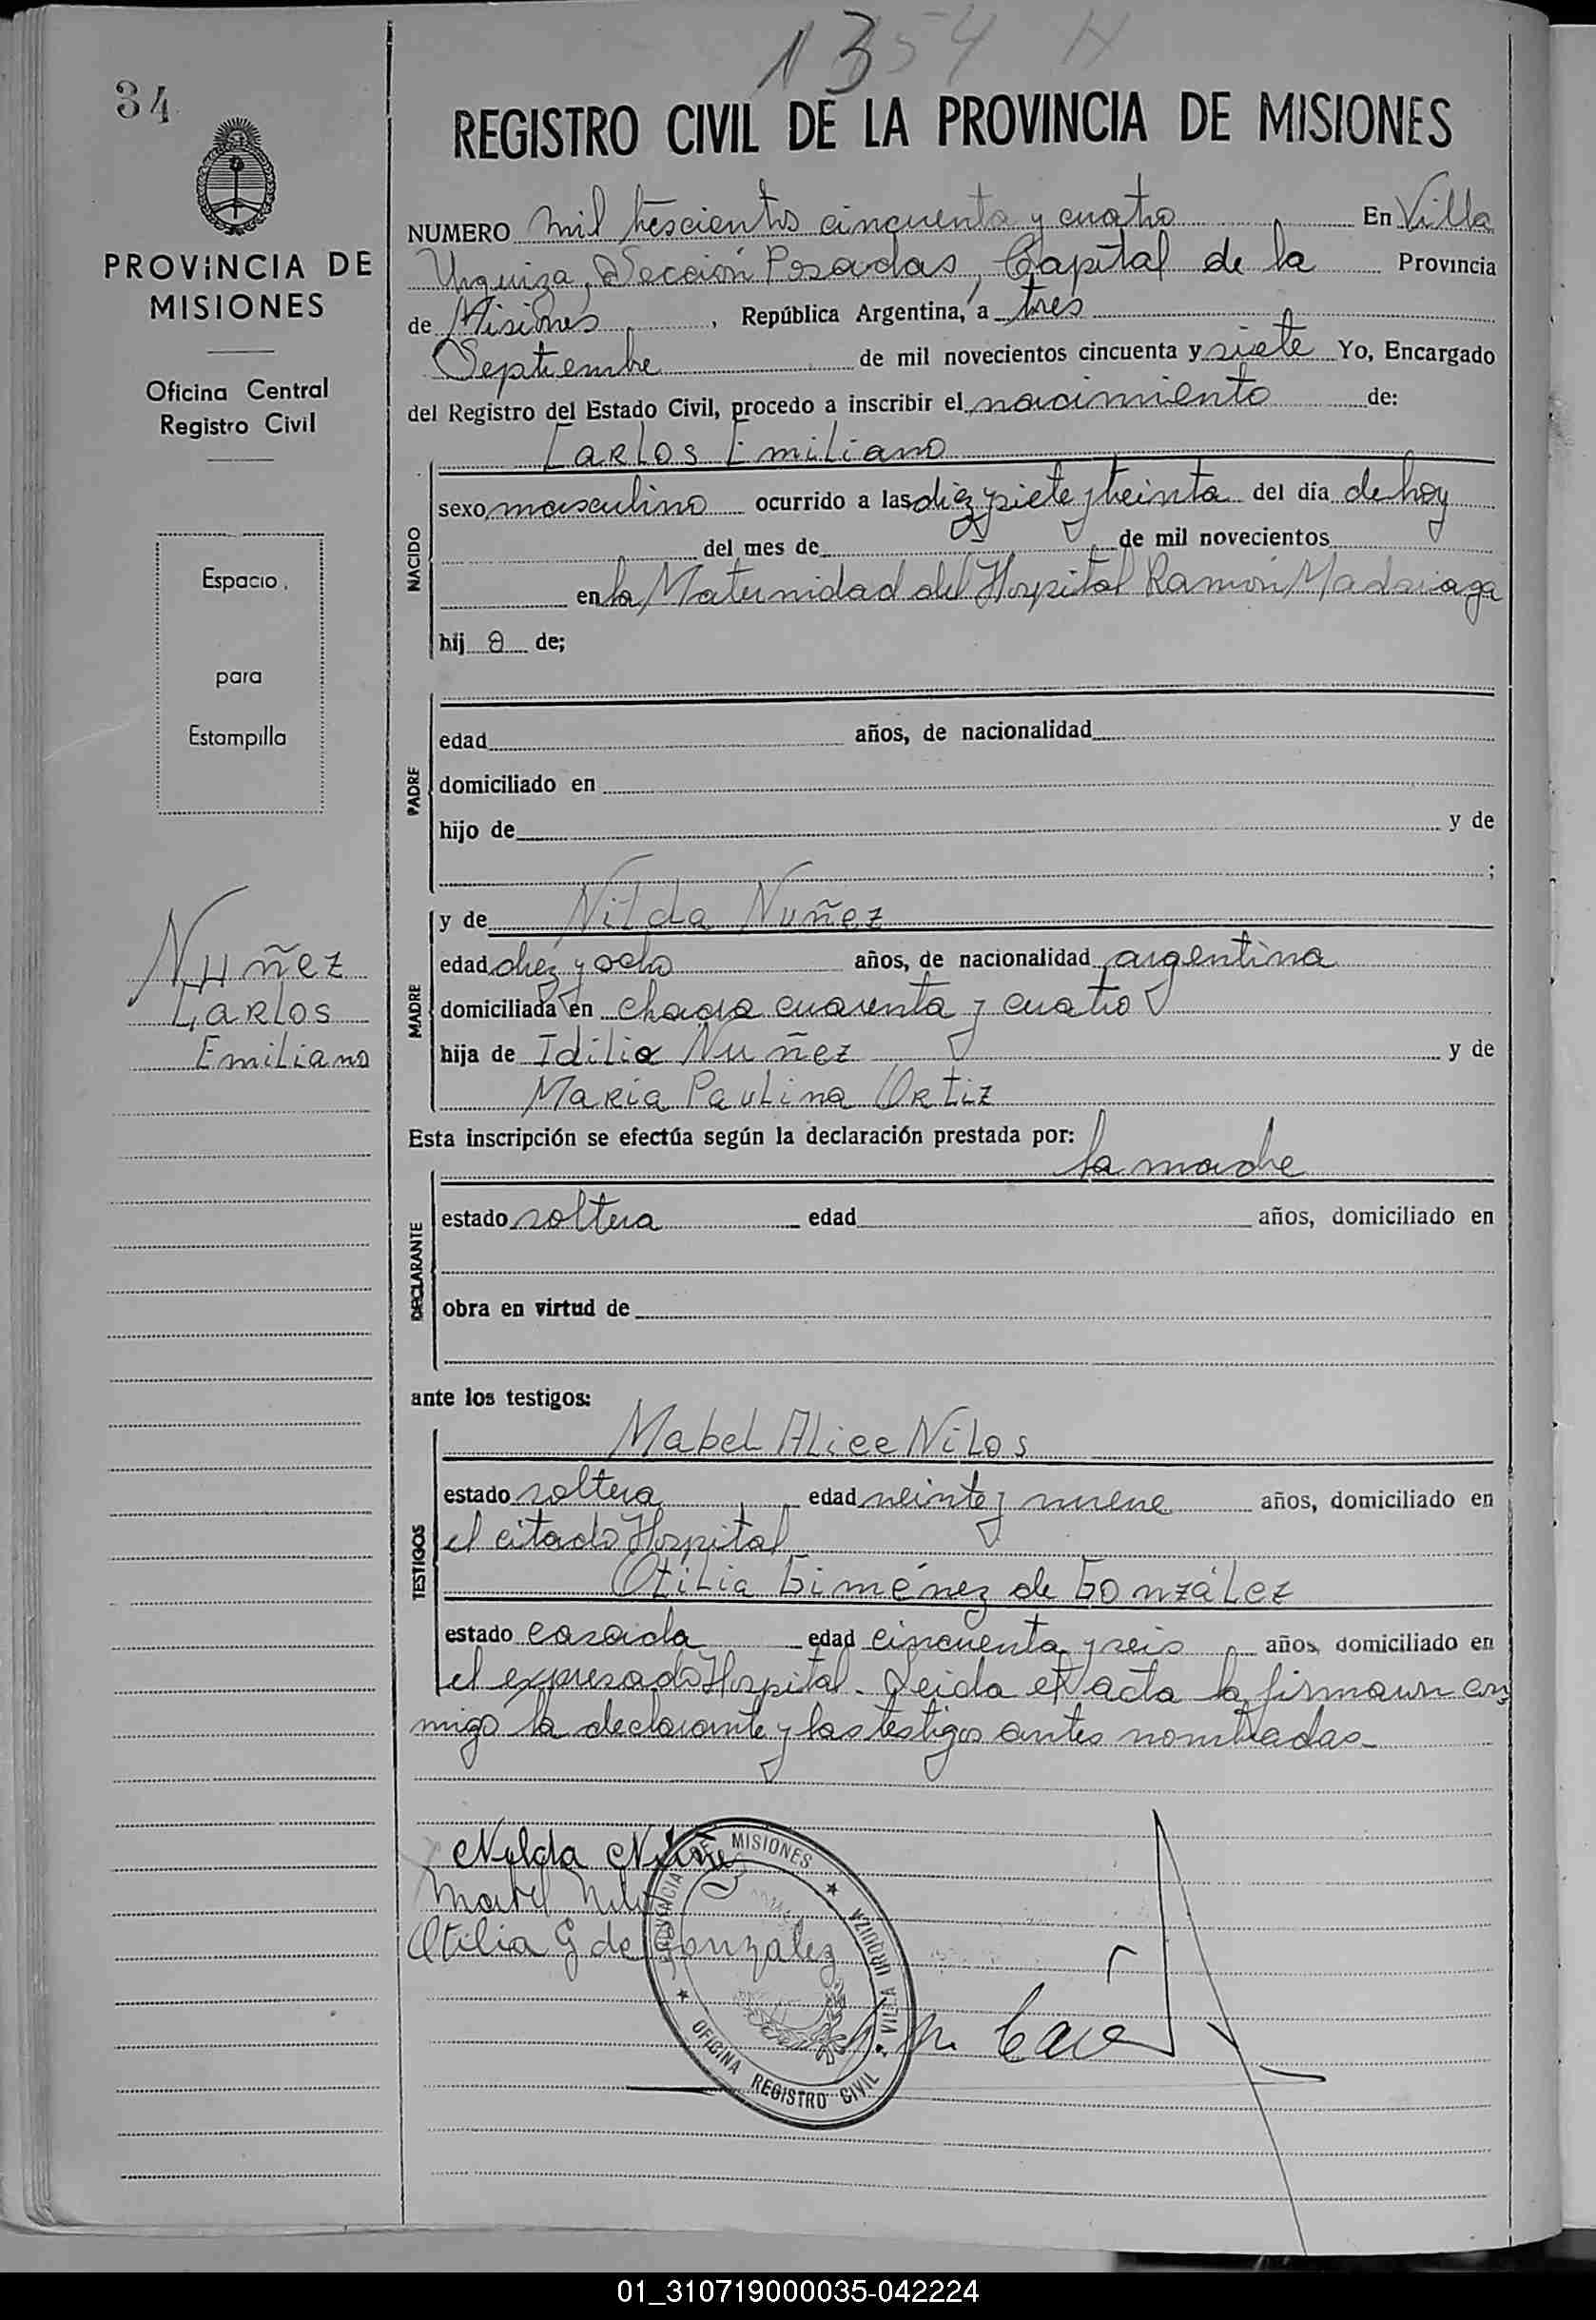 1354 H
34
REGISTRO CIVIL DE LA PROVINCIA DE MISIONES
PROVINCIA DE
MISIONES
Oficina Central
Registro Civil
Espacio
para
Estampilla
Nuñez
Carlos
Emiliano
NUMERO mil trescientos cincuenta y cuatro En Villa
Urquiza, Sección Posadas, Capital de la Provincia
de Misiones, República Argentina, a tres
Septiembre de mil novecientos cincuenta y siete Yo, Encargado
del Registro del Estado Civil, procedo a inscribir el nacimiento de:
Carlos Emiliano
NACIDO
sexo masculino ocurrido a las diez y siete y treinta del día de hoy
del mes de de mil novecientos
en la Maternidad del Hospital Ramón Madariaga
hijo de;
PADRE
edad años, de nacionalidad
domiciliado en
hijo de y de
;
MADRE
y de Nilda Nuñez
edad diez y ocho años, de nacionalidad argentina
domiciliada en chacra cuarenta y cuatro
hija de Idilio Nuñez y de
Maria Paulina Ortiz
Esta inscripción se efectúa según la declaración prestada por:
la madre
DECLARANTE
estado soltera edad años, domiciliado en
obra en virtud de
ante los testigos:
TESTIGOS
Mabel Alice Nilos
estado soltera edad veinte y nueve años, domiciliado en
el citado Hospital
Otilia Giménez de González
estado casada edad cincuenta y seis años, domiciliado en
el expresado Hospital. Leida el acta la firmaron con
migo la declarante y las testigos antes nombradas.-
Nelda Nuñez
Mabel Nilos
Otilia G de Gonzalez
PROVINCIA DE MISIONES
VILLA URQUIZA
OFICINA REGISTRO CIVIL
01_310719000035-042224